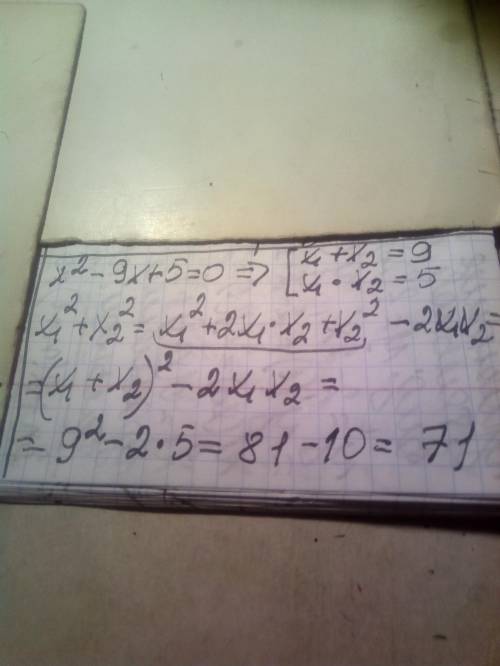 x² - 9x + 5 = 0 => [ x₁ + x₂ = 9
x₁ · x₂ = 5
x₁² + x₂² = x₁² + 2x₁ · x₂ + x₂² - 2x₁x₂ =
= (x₁ + x₂)² - 2x₁x₂ =
= 9² - 2 · 5 = 81 - 10 = 71